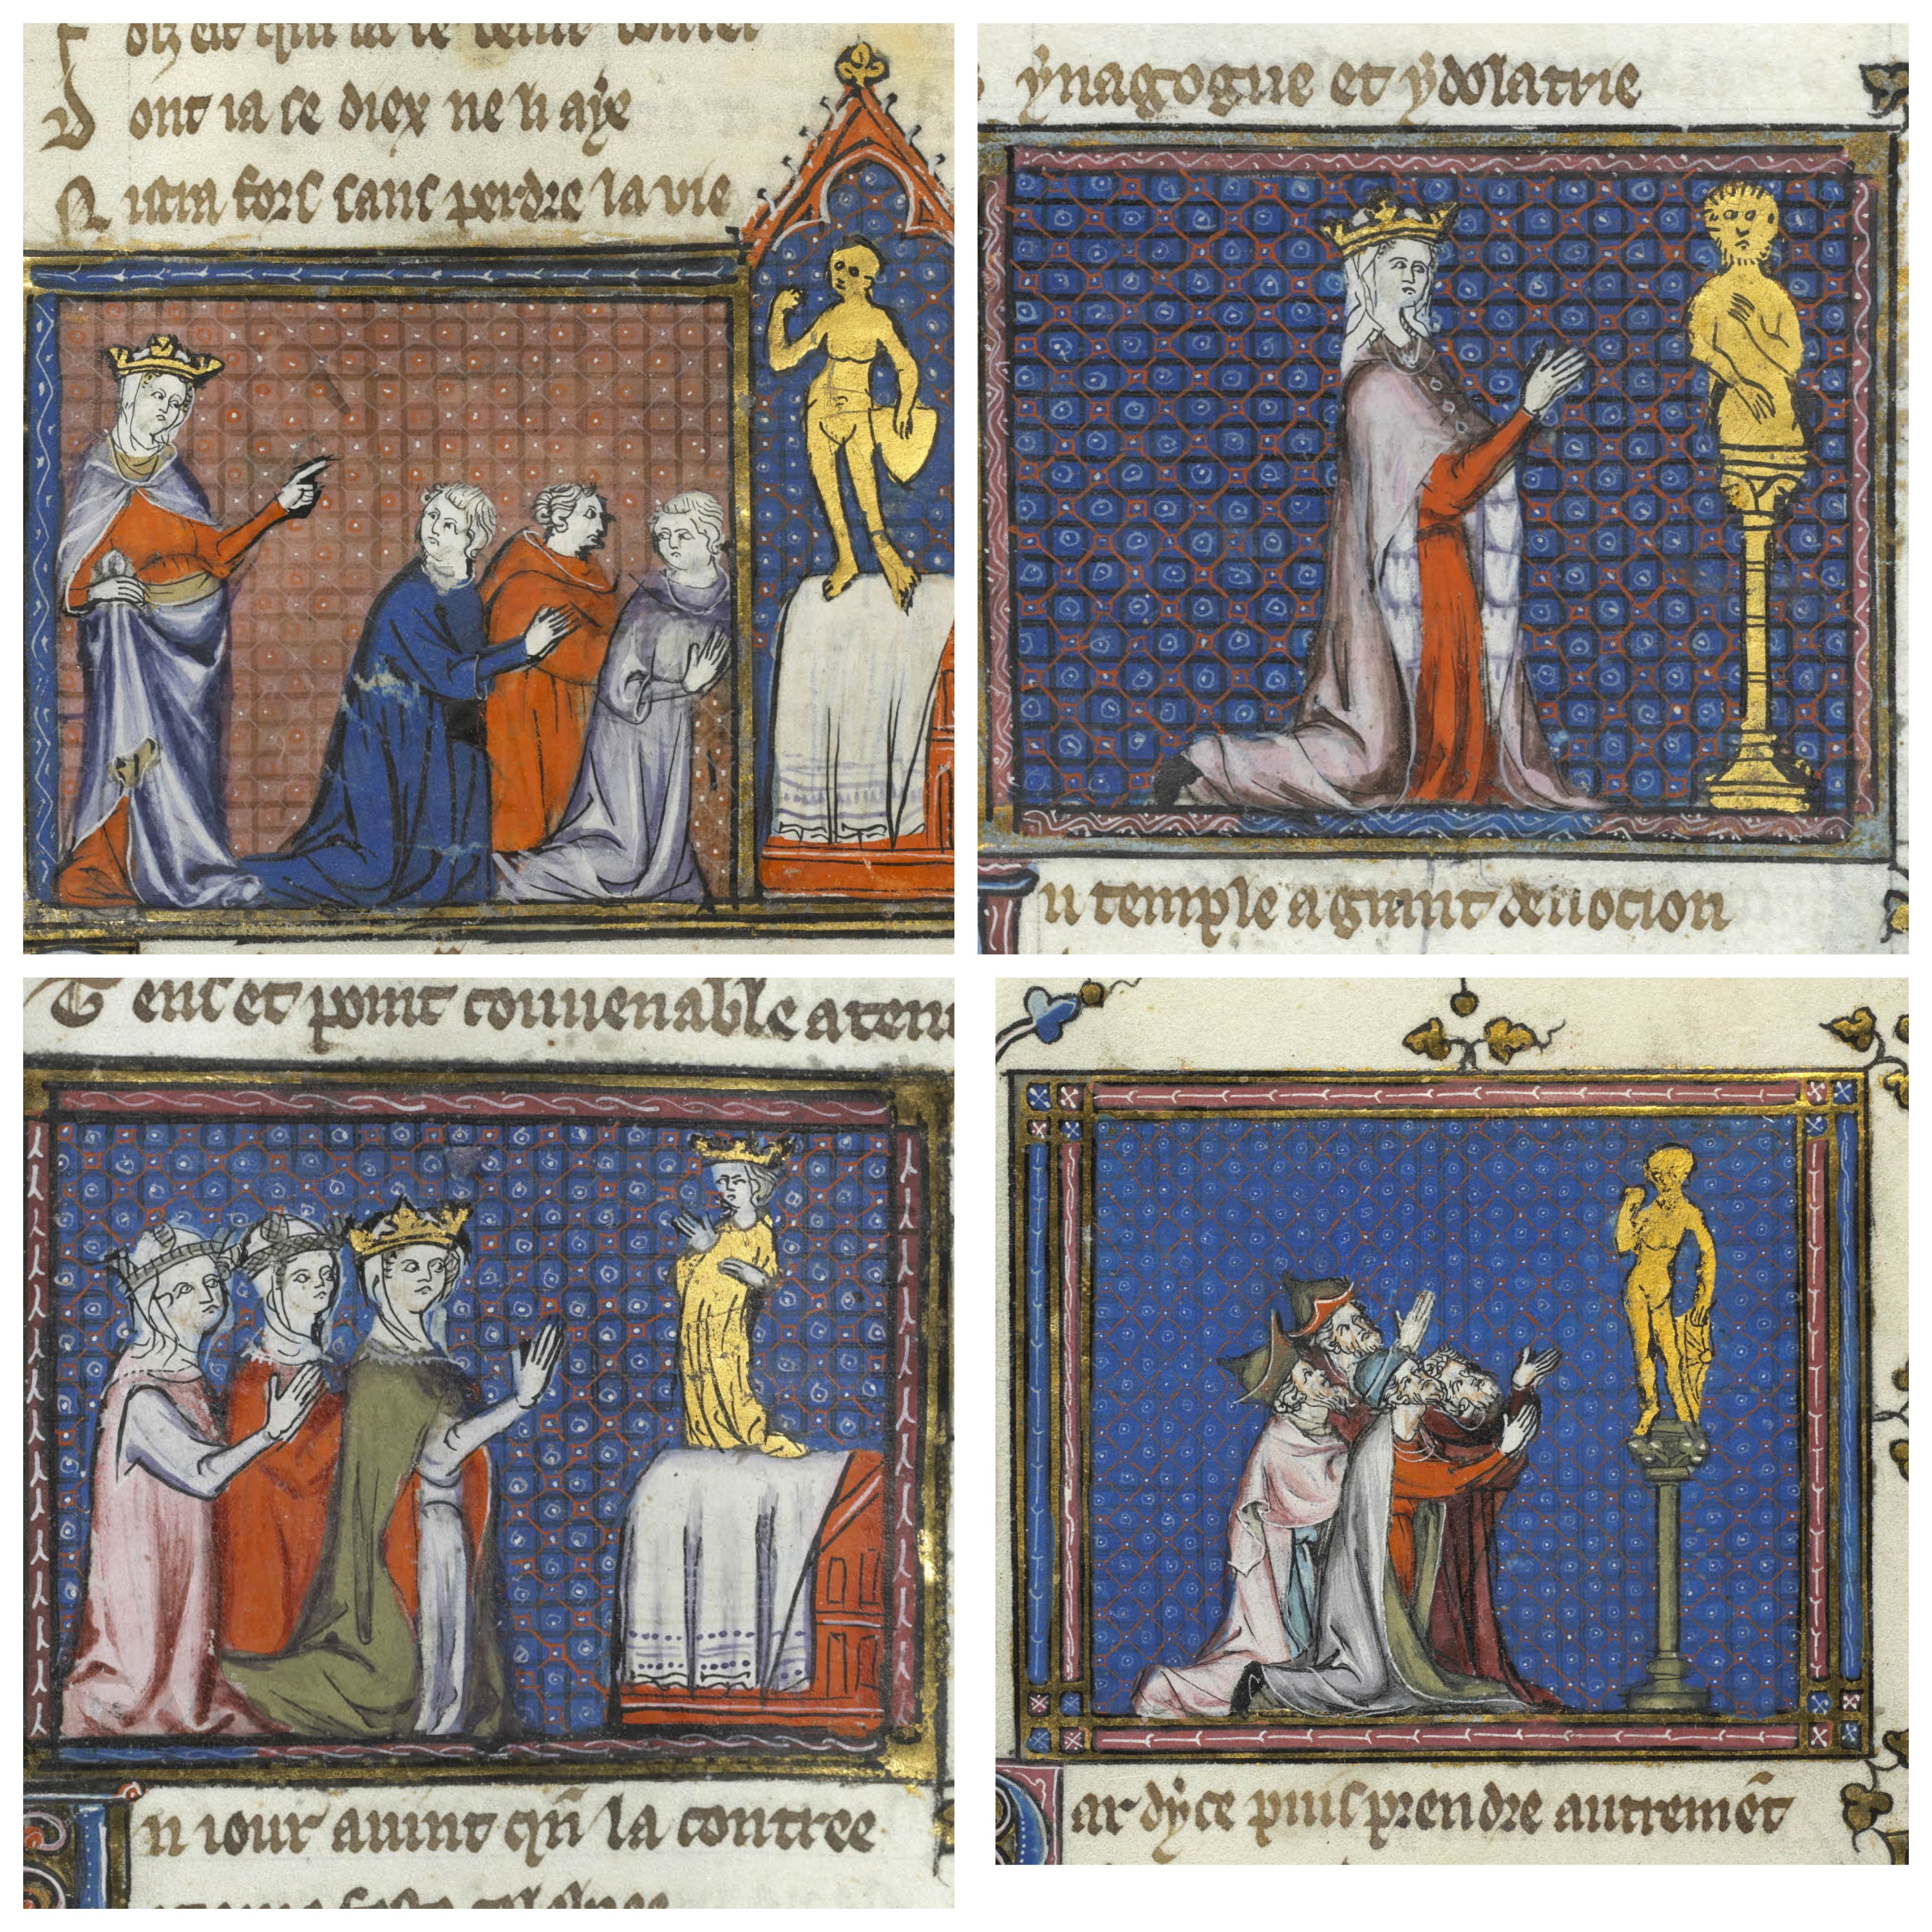 Dont ia se diex ne li aÿe
Quistra fors sans perdre la vie
ÿnagogue et ÿdolatrie
u temple a grant deuocion
Tens et point couuenable a
n iour auint qñ la contree
ar dÿce puis prendre autremēt